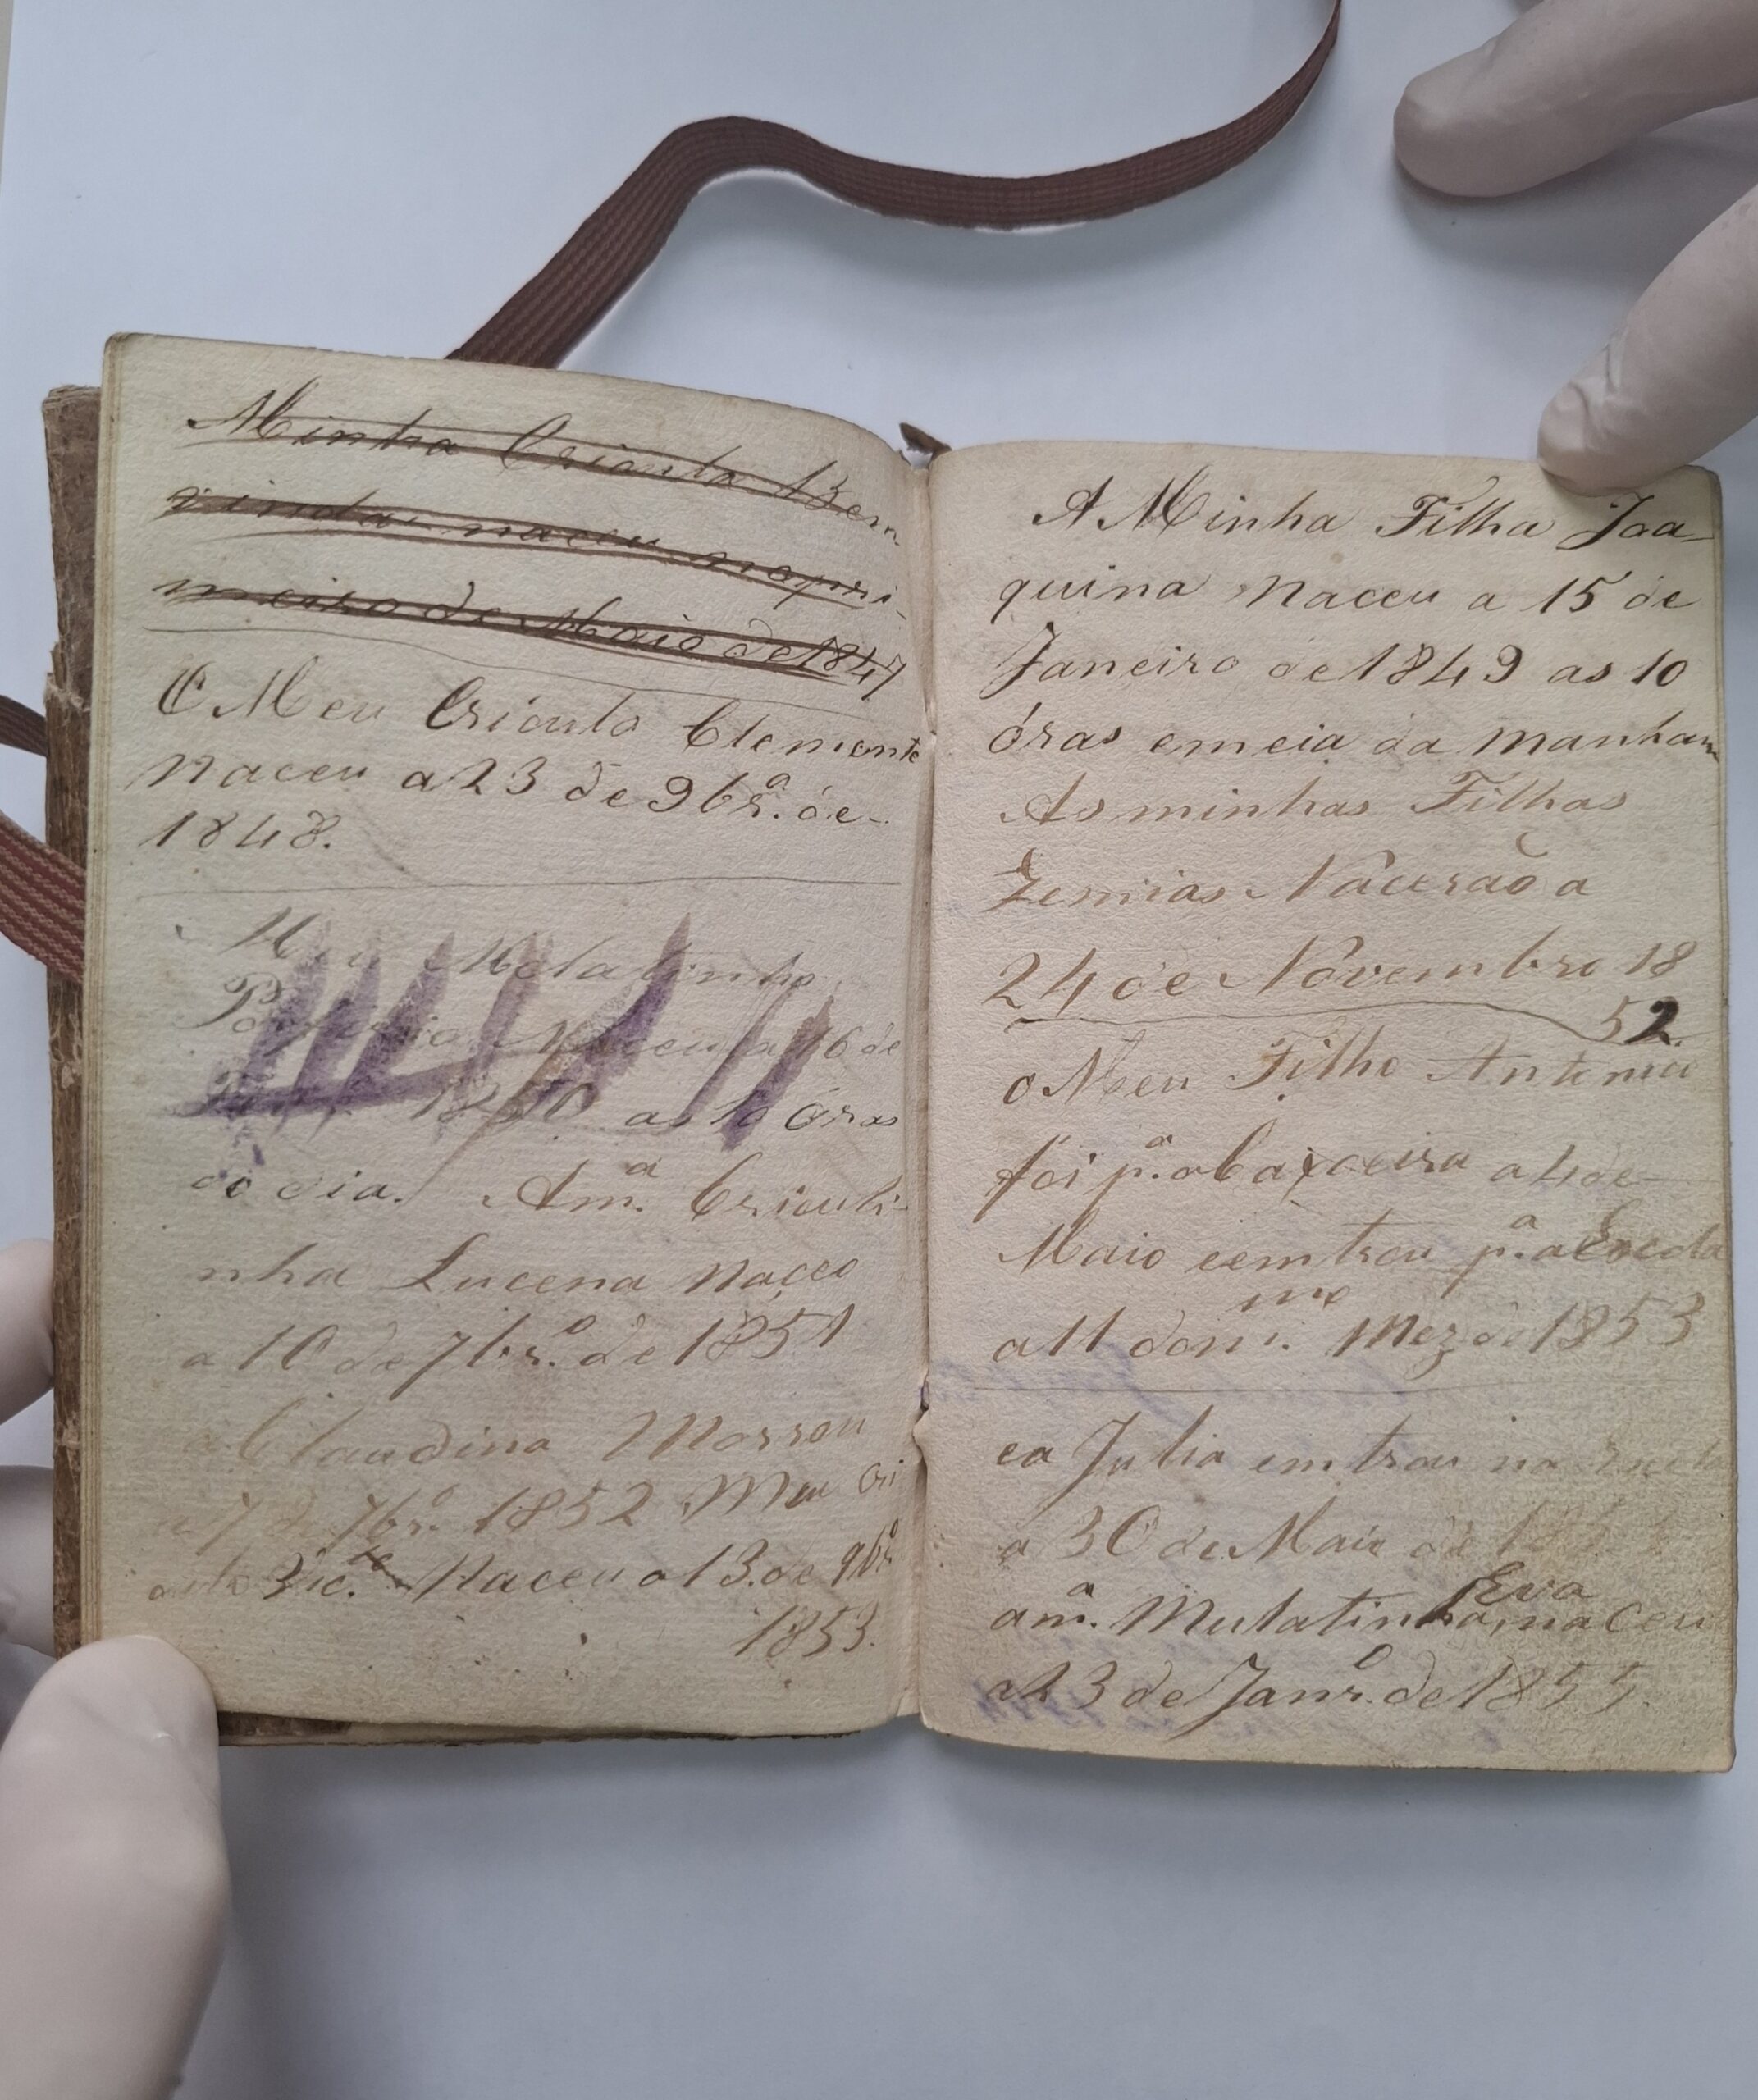 Minha Crioula Bem
vinda naceu no pri-
meiro de Maio de 1847
O Meu Crioulo Clemente
Naceu a 23 de 9br.º de
1848.
Meu Molatinho
Naceu a 16 de
1850 as 10 óras
do dia. Am.ª Criouli-
nha Lucena naceo
a 10 de 7br.º de 1851
a Claudina Morreu
a 7 de 7br.º 1852 Meu Cri
oulo Vic.te Naceu a 13 de 9br.º
1853.
A Minha Filha Joa-
quina Naceu a 15 de
Janeiro de 1849 as 10
óras e meia da manham
As minhas Filhas
Zemias Nacerão a
24 de Novembro 18
52.
o Meu Filho Antonio
foi p.ª a Caxoeira a 4 de
Maio e emtrou p.ª a Escola
a 11 do m.mo Mez de 1853
e a Julia emtrou na
a 30 de Maio de
Eva
a m.ª Mulatinha, naceu
a 23 de Janr.º de 1855.